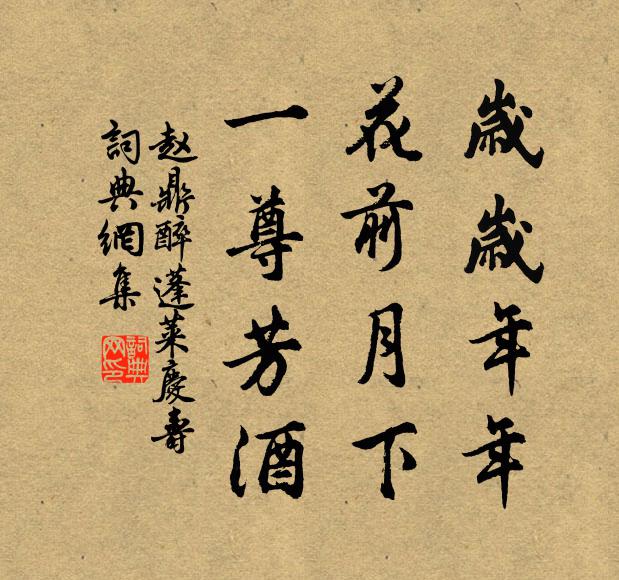 歲歲年年
花前月下
一尊芳酒
赵鼎醉蓬萊慶壽
詞典網集
詞典
网印